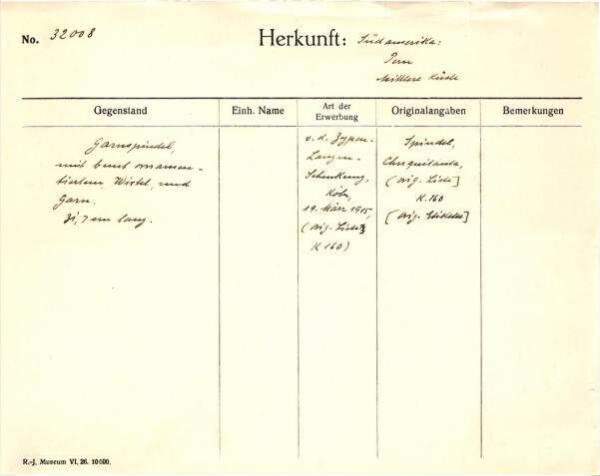 No. 32008
Herkunft: Südamerika:
Peru
Mittlere Küste
Gegenstand
Einh. Name
Art der
Erwerbung
Originalangaben
Bemerkungen
Garnspindel,
mit bunt ornamen-
tiertem Wirtel und
Garn.
cm lang.
v. d. Zypen-
Langen-
Schenkung,
Köln,
19. März 1915,
(orig. Liste
K 160)
Spindel,
Chuquitanta,
(orig. Liste]
K. 160
(orig. Etikette]
R.-J. Museum VI. 26. 10000.